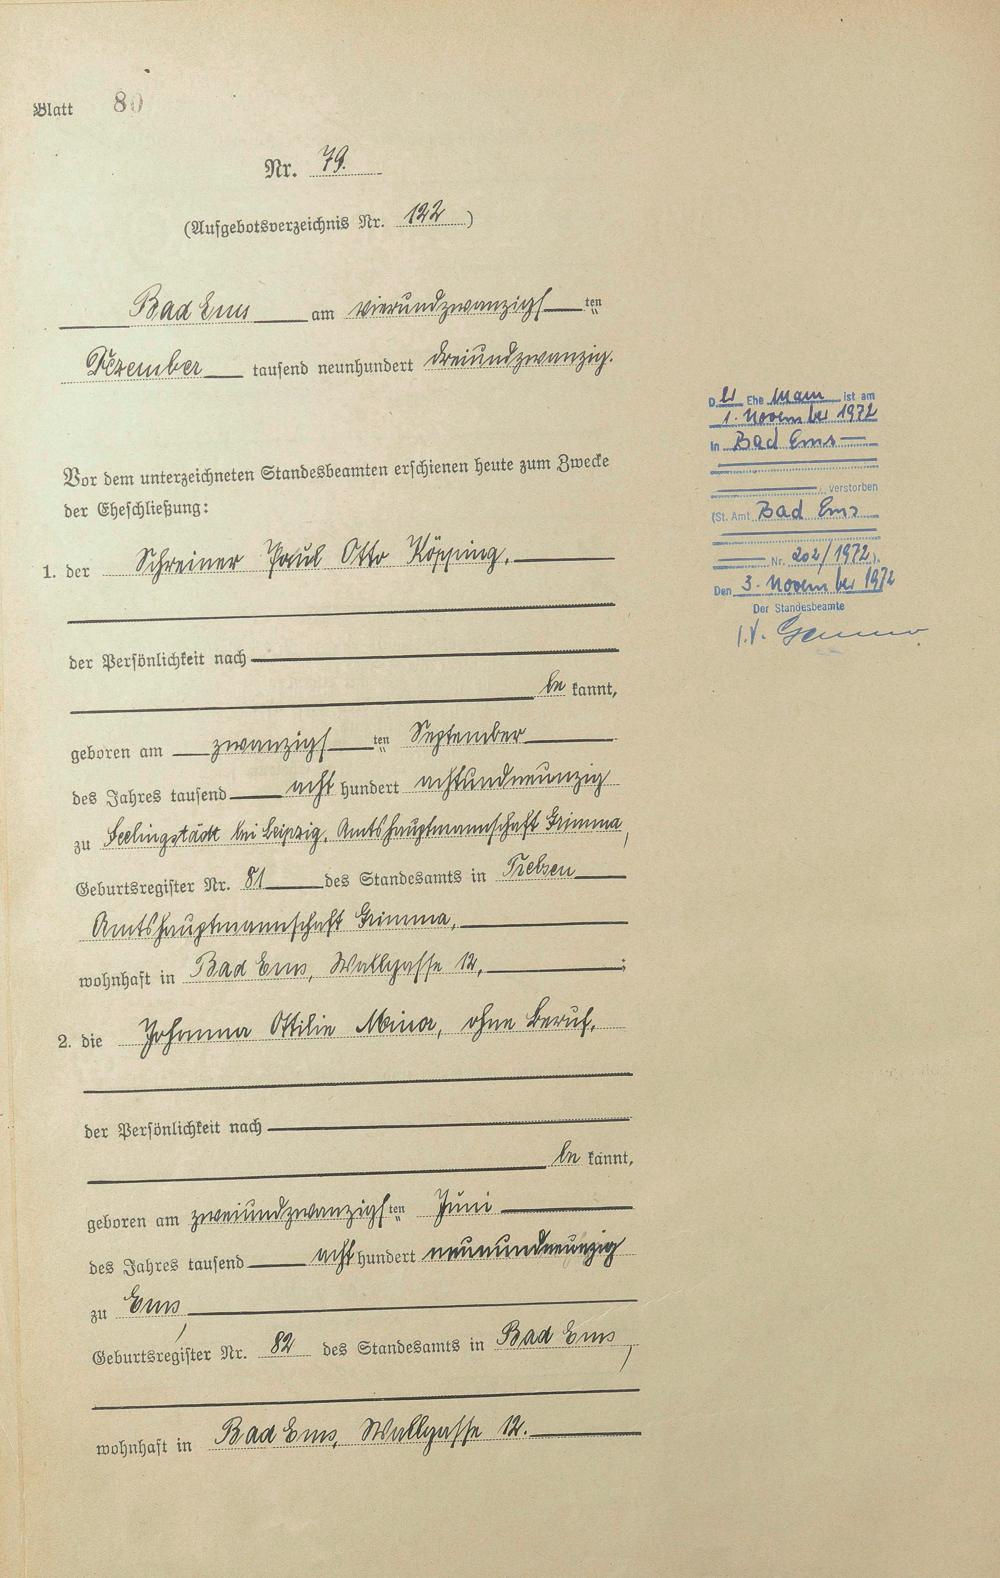 Blatt 80
Nr. 79.
(Aufgebotsverzeichnis Nr. 122)
Bad Ems am vierundzwanzigsten
Dezember tausend neunhundert dreiundzwanzig.
Vor dem unterzeichneten Standesbeamten erschienen heute zum Zwecke
der Eheschließung:
1. der Schreiner Paul Otto Köpping,
der Persönlichkeit nach
be kannt,
geboren am zwanzigsten September
des Jahres tausend acht hundert achtundneunzig
zu Seelingstädt bei Leipzig, Amtshauptmannschaft Grimma,
Geburtsregister Nr. 81 des Standesamts in Trebsen
Amtshauptmannschaft Grimma,
wohnhaft in Bad Ems, Wallgasse 12,;
2. die Johanna Ottilie Minor, ohne Beruf,
der Persönlichkeit nach
be kannt,
geboren am zweiundzwanzigsten Juni
des Jahres tausend acht hundert neunundneunzig
zu Ems,
Geburtsregister Nr. 82 des Standesamts in Bad Ems,
wohnhaft in Bad Ems, Wallgasse 12.
Der Ehe Mann ist am
1. November 1972
in Bad Ems
verstorben
(St. Amt Bad Ems
Nr. 202/1972).
Den 3. November 1972
Der Standesbeamte
I.V.